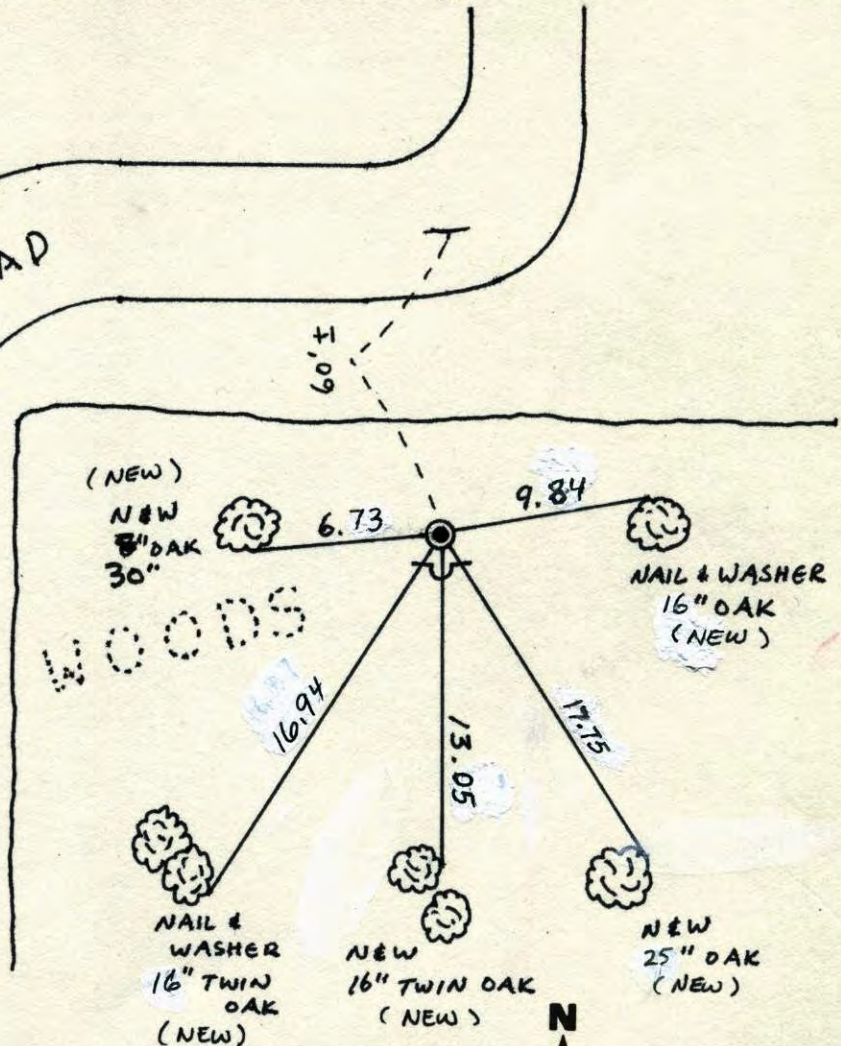 AD
60'±
(NEW)
N&W
OAK
30"
6.73
9.84
NAIL & WASHER
16" OAK
(NEW)
WOODS
16.94
13.05
17.75
NAIL &
WASHER
16" TWIN
OAK
(NEW)
N&W
16" TWIN OAK
(NEW)
N&W
25" OAK
(NEW)
N